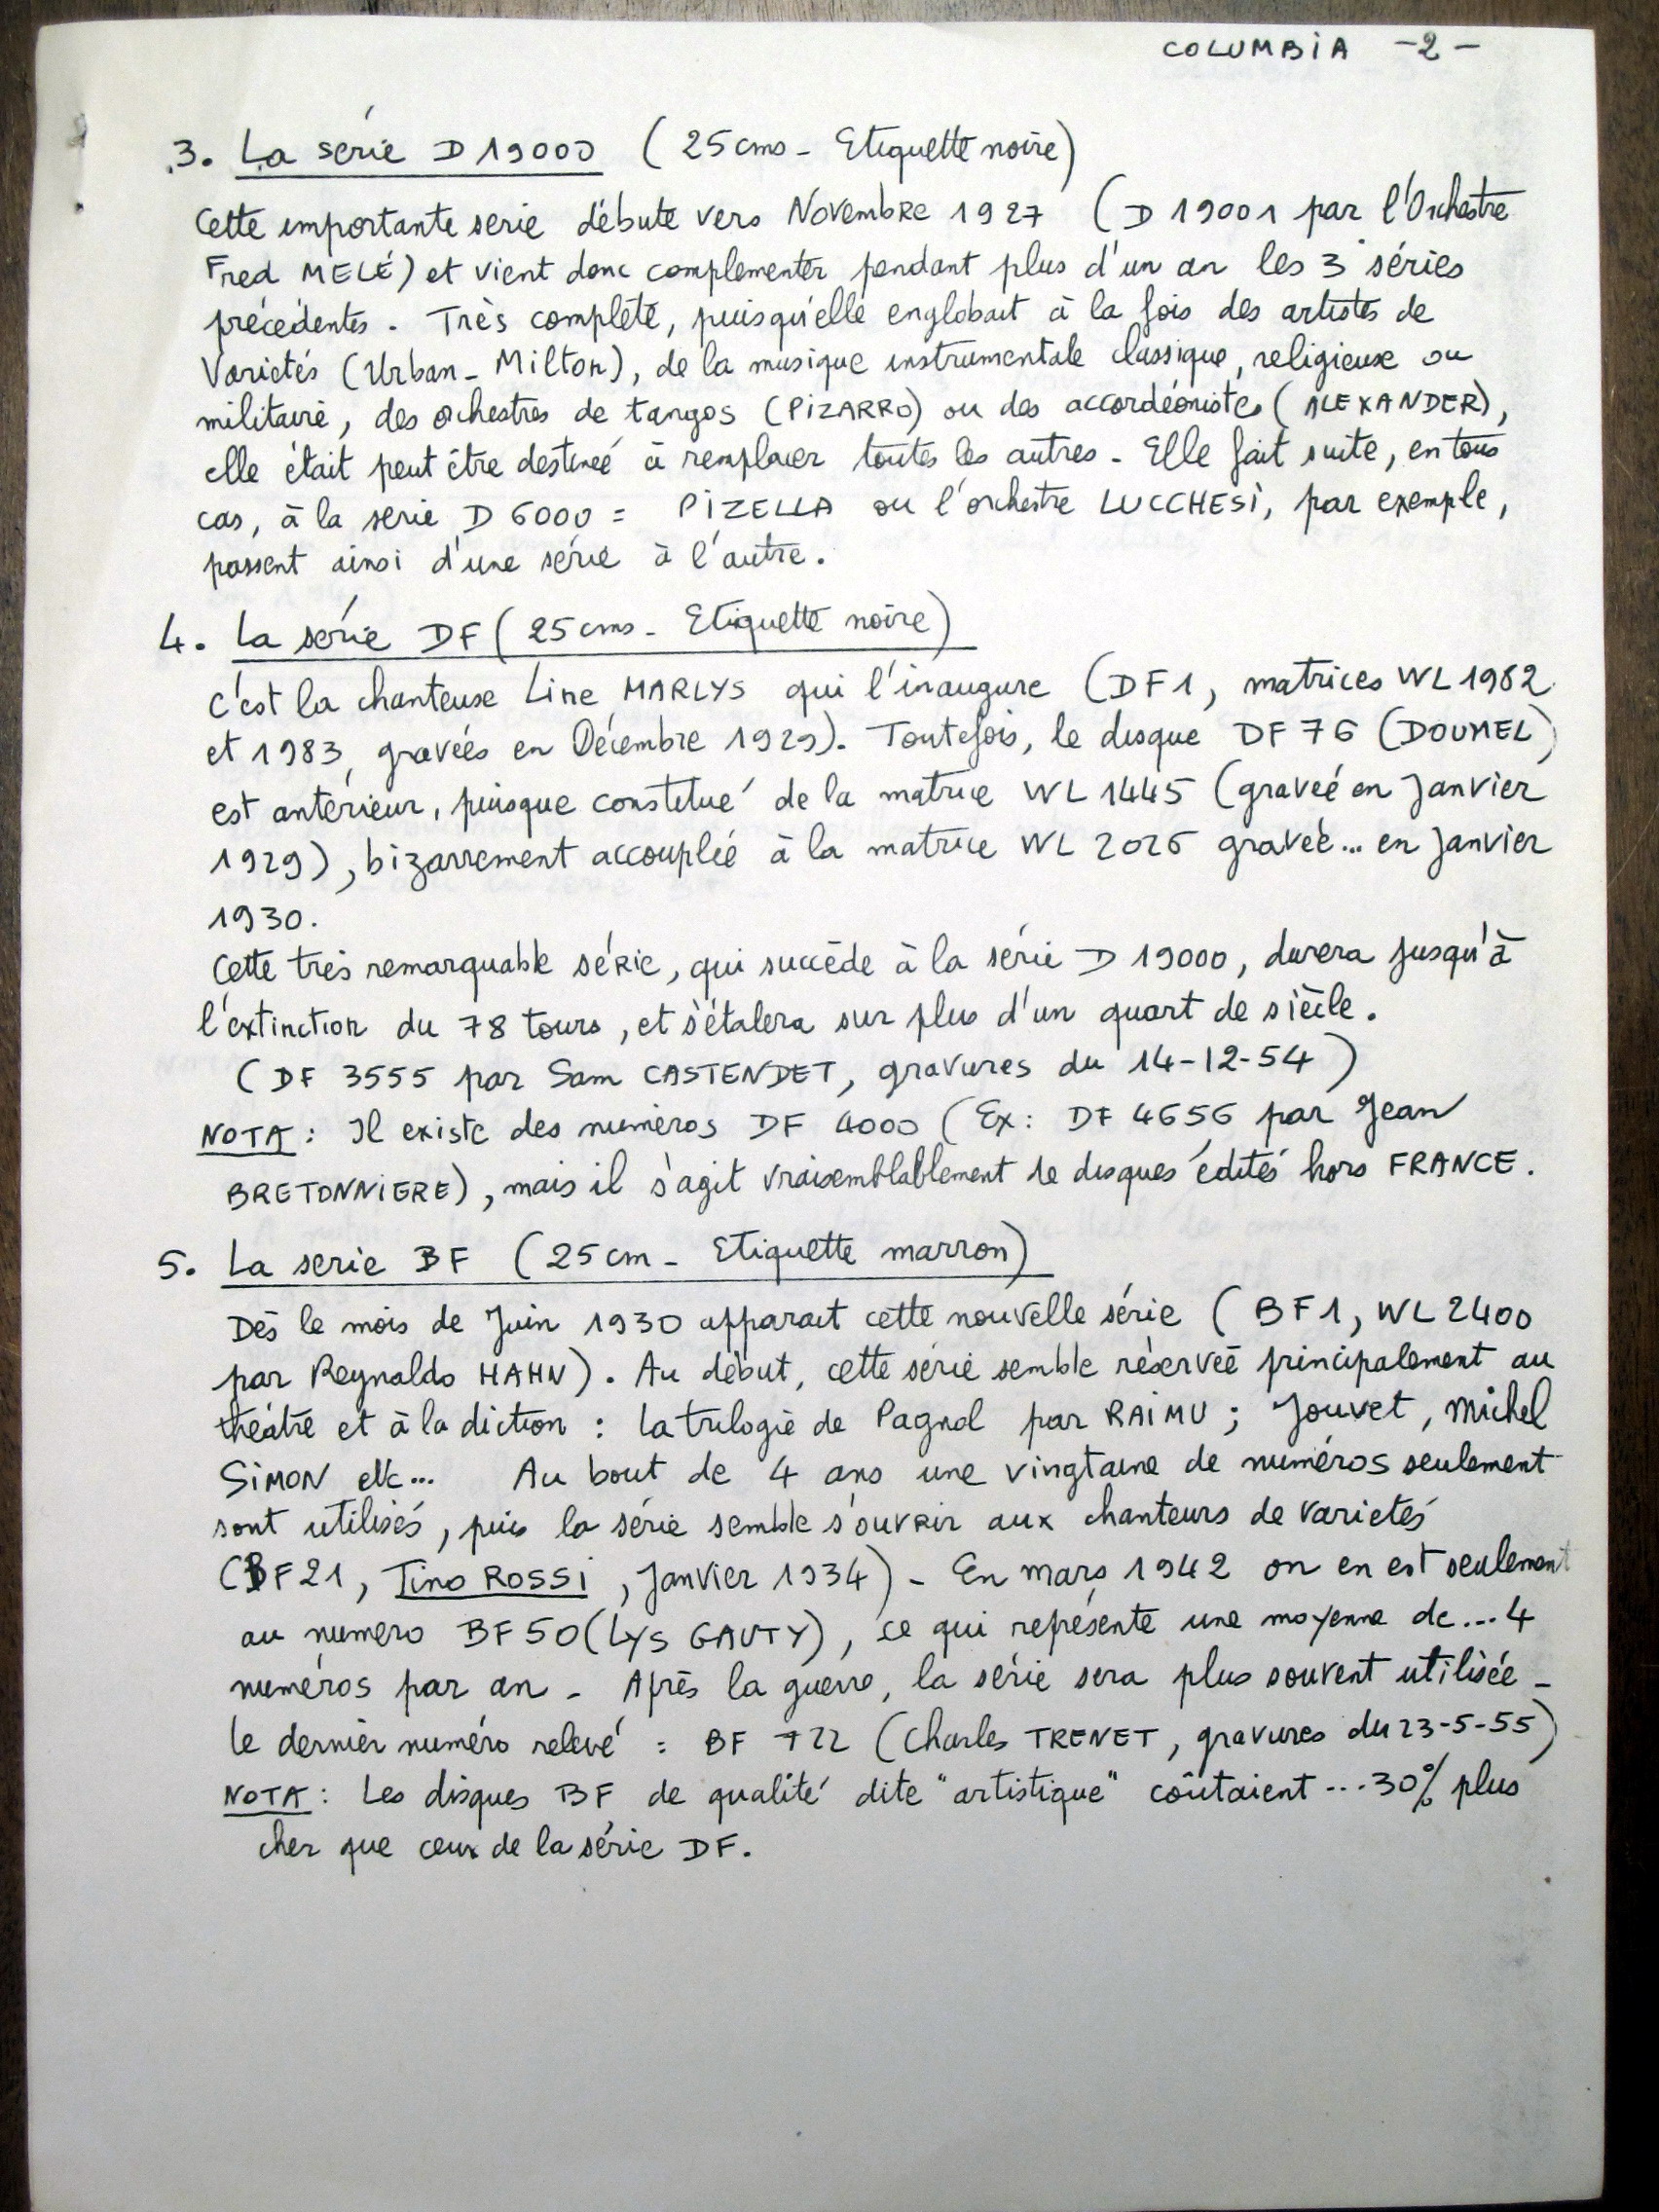 COLUMBIA -2-
3. La série D 19000 (25cms - Etiquette noire)
Cette importante série débute vers Novembre 1927 (D 19001 par l'Orchestre
Fred MELÉ) et vient donc complementer pendant plus d'un an les 3 séries
précédentes. Très complète, puisqu'elle englobait à la fois des artistes de
Variétés (Urban - Milton), de la musique instrumentale classique, religieuse ou
militaire, des orchestres de tangos (PIZARRO) ou des accordéonistes (ALEXANDER),
elle était peut être destinée à remplacer toutes les autres - Elle fait suite, en tous
cas, à la série D 6000 = PIZELLA ou l'orchestre LUCCHESI, par exemple,
passent ainsi d'une série à l'autre.
4. La série DF (25cms - Etiquette noire)
C'est la chanteuse Line MARLYS qui l'inaugure (DF1, matrices WL 1982
et 1983, gravées en Décembre 1929). Toutefois, le disque DF 76 (DOUMEL)
est antérieur, puisque constitué de la matrice WL 1445 (gravée en Janvier
1929), bizarrement accouplée à la matrice WL 2026 gravée... en Janvier
1930.
Cette très remarquable série, qui succède à la série D 19000, durera jusqu'à
l'extinction du 78 tours, et s'étalera sur plus d'un quart de siècle.
(DF 3555 par Sam CASTENDET, gravures du 14-12-54)
NOTA : Il existe des numéros DF 4000 (Ex: DF 4656 par Jean
BRETONNIERE), mais il s'agit vraisemblablement de disques édités hors FRANCE.
5. La serie BF (25cm - Etiquette marron)
Dès le mois de Juin 1930 apparait cette nouvelle série (BF1, WL 2400
par Reynaldo HAHN). Au début, cette série semble réservée principalement au
théâtre et à la diction : la trilogie de Pagnol par RAIMU ; Jouvet, Michel
SIMON etc... Au bout de 4 ans une vingtaine de numéros seulement
sont utilisés, puis la série semble s'ouvrir aux chanteurs de variétés
(BF21, Tino ROSSI, Janvier 1934) - En mars 1942 on en est seulement
au numéro BF50 (LYS GAUTY), ce qui représente une moyenne de... 4
numéros par an - Après la guerre, la série sera plus souvent utilisée -
le dernier numéro relevé : BF 722 (Charles TRENET, gravures du 23-5-55)
NOTA : Les disques BF de qualité dite "artistique" coûtaient ... 30% plus
cher que ceux de la série DF.